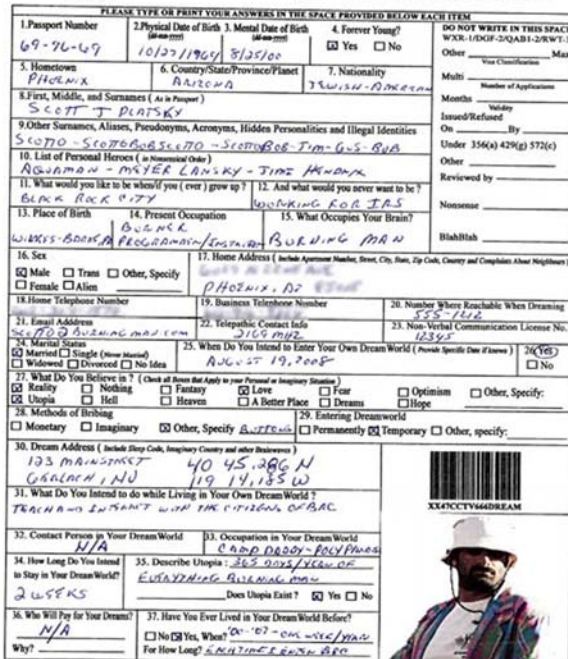 PLEASE TYPE OR PRINT YOUR ANSWERS IN THE SPACE PROVIDED BELOW EACH ITEM
1.Passport Number
69-96-69
2.Physical Date of Birth
10/27/1964
3. Mental Date of Birth
8/25/00
4. Forever Young?
☒ Yes ☐ No
DO NOT WRITE IN THIS SPACE
WXR-1/DGF-2/QAB1-2/RWT-
Other Max
Visa Classification
Multi
Number of Applications
Months
Validity
Issued/Refused
On By
Under 356(a) 429(g) 572(c)
Other
Reviewed by
Nonsense
BlahBlah
5. Hometown
PHOENIX
6. Country/State/Province/Planet
ARIZONA
7. Nationality
JEWISH-AMERICAN
8.First, Middle, and Surnames ( As in Passport )
SCOTT J PLATSKY
9.Other Surnames, Aliases, Pseudonyms, Acronyms, Hidden Personalities and Illegal Identities
SCOTTO - SCOTTOBOBSCOTTO - SCOTTOBOB-TIM-GUS-BUB
10. List of Personal Heroes ( in Nonsensical Order )
AQUAMAN - MEYER LANSKY - JIMI HENDRIX
11. What would you like to be when/if you ( ever ) grow up ?
BLACK ROCK CITY
12. And what would you never want to be ?
WORKING FOR IRS
13. Place of Birth
WILKES-BARRE, PA
14. Present Occupation
BURNER
15. What Occupies Your Brain?
BURNING MAN
16. Sex
☒ Male ☐ Trans ☐ Other, Specify
☐ Female ☐ Alien
17. Home Address ( Include Apartment Number, Street, City, State, Zip Code, Country and Complaints About Neighbours )
PHOENIX, AZ
18.Home Telephone Number
19. Business Telephone Number
20. Number Where Reachable When Dreaming
555-1212
21. Email Adddress
SCOTTO@BURNINGMAN.COM
22. Telepathic Contact Info
2169 MHZ
23. Non-Verbal Communication License No.
12345
24. Marital Status
☒ Married ☐ Single (Never Married)
☐ Widowed ☐ Divorced ☐ No Idea
25. When Do You Intend to Enter Your Own DreamWorld ( Provide Specific Date if known )
AUGUST 19, 2008
26. Yes
☐ No
27. What Do You Believe in ? ( Check all Boxes that Apply to your Personal or Imaginary Situation )
☒ Reality ☐ Nothing ☐ Fantasy ☒ Love ☐ Fear ☐ Optimism ☐ Other, Specify:
☒ Utopia ☐ Hell ☐ Heaven ☐ A Better Place ☐ Dreams ☐ Hope
28. Methods of Bribing
☐ Monetary ☐ Imaginary ☒ Other, Specify BUTTONS
29. Entering Dreamworld
☐ Permanently ☒ Temporary ☐ Other, specify:
30. Dream Address ( Include Sleep Code, Imaginary Country and other Brainwaves )
123 MAINSTREET 40 45,286 N
GERLACH, NV 119 14,185 W
XX47CCTV666DREAM
31. What Do You Intend to do while Living in Your Own DreamWorld ?
TEACH AND INTERACT WITH THE CITIZENS OF BRC
32. Contact Person in Your DreamWorld
N/A
33. Occupation in Your DreamWorld
CAMP DADDY-
34. How Long Do You Intend to Stay in Your DreamWorld?
2 WEEKS
35. Describe Utopia : 365 DAYS/YEAR OF
EVERYTHING BURNING MAN
Does Utopia Exist ? ☒ Yes ☐ No
36. Who Will Pay for Your Dreams?
N/A
Why?
37. Have You Ever Lived in Your DreamWorld Before?
☐ No ☒ Yes, When? '00-'07 - ONE WEEK/YEAR
For How Long?